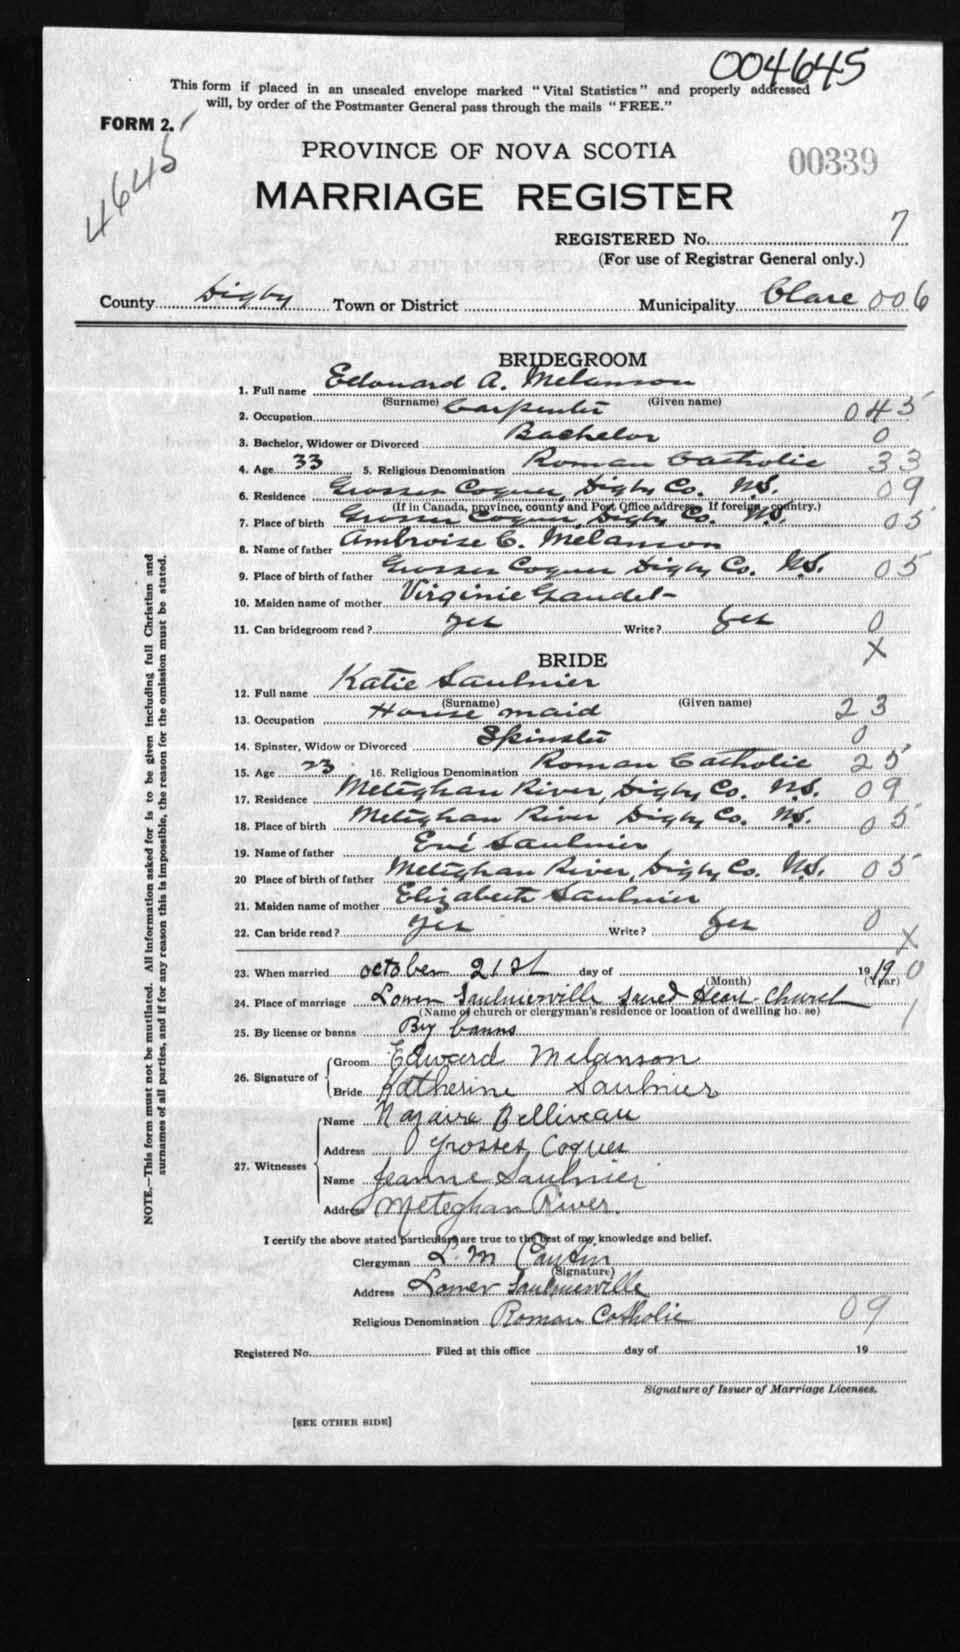 004645
This form if placed in an unsealed envelope marked "Vital Statistics" and properly addressed
will, by order of the Postmaster General pass through the mails "FREE."
FORM 2.
4645
PROVINCE OF NOVA SCOTIA
00339
MARRIAGE REGISTER
REGISTERED No. 7
(For use of Registrar General only.)
County Digby Town or District Municipality Clare 006
BRIDEGROOM
1. Full name Edouard A. Melanson
(Surname) (Given name)
2. Occupation Carpenter 045
3. Bachelor, Widower or Divorced Bachelor 0
4. Age 33 5. Religious Denomination Roman Catholic 33
6. Residence Grosses Coques, Digby Co. N.S. 09
(If in Canada, province, county and Post Office address. If foreign, country.)
7. Place of birth Grosses Coques, Digby Co. N.S. 05
8. Name of father Ambroise C. Melanson
9. Place of birth of father Grosses Coques Digby Co. N.S. 05
10. Maiden name of mother Virginie Gaudet
11. Can bridegroom read? yes Write? yes 0
X
BRIDE
12. Full name Katie Saulnier
(Surname) (Given name)
13. Occupation House maid 23
14. Spinster, Widow or Divorced Spinster 0
15. Age 23 16. Religious Denomination Roman Catholic 25
17. Residence Meteghan River, Digby Co. N.S. 09
18. Place of birth Meteghan River Digby Co. N.S. 05
19. Name of father Saulnier
20 Place of birth of father Meteghan River, Digby Co. N.S. 05
21. Maiden name of mother Elizabeth Saulnier
22. Can bride read? yes Write? yes 0
X
23. When married October 21st day of 1919 0
(Month) (Year)
24. Place of marriage Lower Saulnierville Sacred Heart Church 1
(Name of church or clergyman's residence or location of dwelling house)
25. By license or banns By banns
26. Signature of Groom Edward Melanson
Bride Katherine Saulnier
27. Witnesses Name Nazaire Belliveau
Address Grosses Coques
Name Jeanne Saulnier
Address Meteghan River.
I certify the above stated particulars are true to the best of my knowledge and belief.
Clergyman L. M.
(Signature)
Address Lower Saulnierville
Religious Denomination Roman Catholic 09
Registered No. Filed at this office day of 19
Signature of Issuer of Marriage Licenses.
[SEE OTHER SIDE]
NOTE.—This form must not be mutilated. All information asked for is to be given including full Christian and
surnames of all parties, and if for any reason this is impossible, the reason for the omission must be stated.